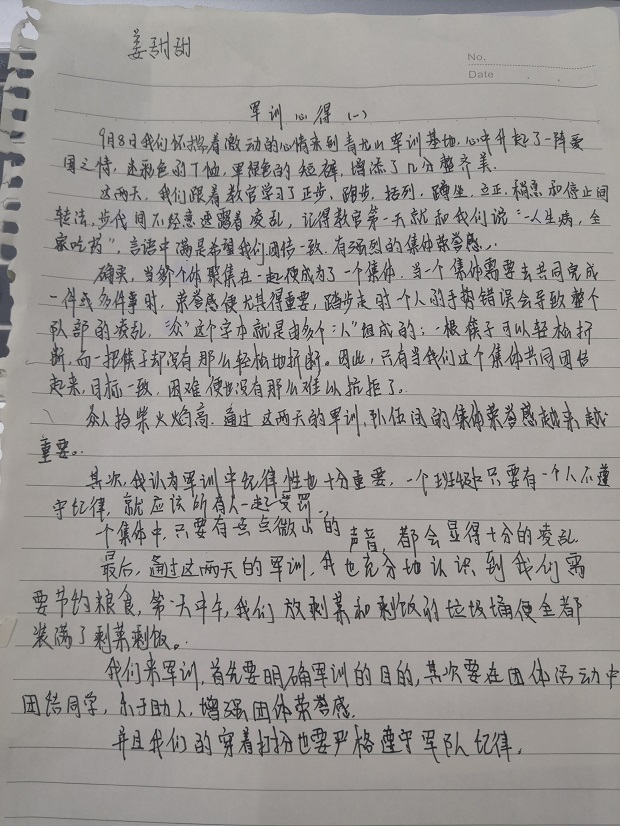 姜甜甜
No.
Date
军训心得(一)
9月8日我们怀揣着激动的心情来到青龙山军训基地.心中升起了一阵爱
国之情,迷彩色的T恤,军绿色的短裤,增添了几分整齐美.
这两天,我们跟着教官学习了正步、踏步、括列、蹲坐、立正、稍息和停止间
转法,步伐间不经意透露着凌乱,记得教官第一天就和我们说:"一人生病,全
家吃药",言语中满是希望我们团结一致.有强烈的集体荣誉感.
确实,当多个个体聚集在一起便成为了一个集体.当一个集体需要去共同完成
一件或多件事时,荣誉感便尤其得重要,踏步走时一个人的手势错误会导致整个
队部的凌乱,"众"这个字本就是由多个"人"组成的;一根筷子可以轻松折
断,而一把筷子却没有那么轻松地折断。因此,只有当我们这个集体共同团结
起来,目标一致,困难便也没有那么难以抗拒了。
众人拾柴火焰高.通过这两天的军训,队伍间的集体荣誉感越来越
重要。
其次,我认为军训中纪律性也十分重要,一个班级中只要有一个人不遵
守纪律,就应该所有人一起受罚.
一个集体中,只要有一点点微小的声音,都会显得十分的凌乱
最后,通过这两天的军训,我也充分地认识到我们需
要节约粮食,第一天中午,我们放剩菜和剩饭的垃圾桶便全都
装满了剩菜剩饭。
我们来军训,首先要明确军训的目的,其次要在团体活动中
团结同学,乐于助人,增强团体荣誉感.
并且我们的穿着打扮也要严格遵守军队纪律.